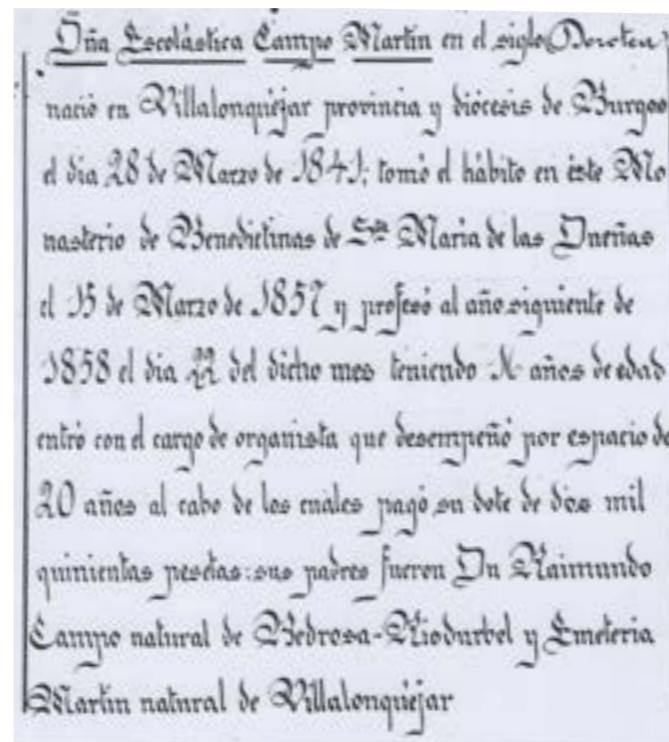 Dña Escolástica Campo Martín en el siglo (Dorotea)
nació en Villalonquéjar provincia y diócesis de Burgos
el dia 28 de Marzo de 1841; tomó el hábito en éste Mo
nasterio de Benedictinas de Sta Maria de las Dueñas
el 15 de Marzo de 1857 y profesó al año siguiente de
1858 el dia 22 del dicho mes teniendo años de edad
entró con el cargo de organista que desempeñó por espacio de
20 años al cabo de los cuales pagó su dote de dos mil
quinientas pesetas: sus padres fueron Dn Raimundo
Campo natural de Pedrosa-Riodurbel y Emeteria
Martín natural de Villalonquéjar